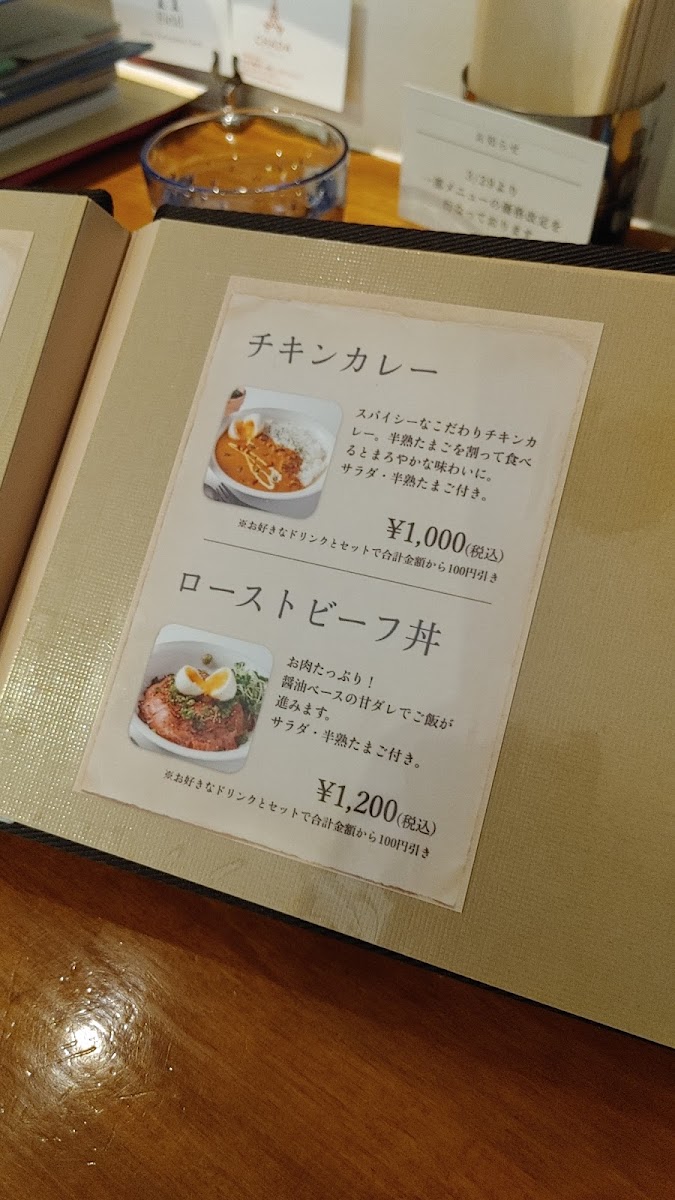 CANADA
お知らせ
3/25より
一部メニューの価格改定を
行なっております
チキンカレー
スパイシーなこだわりチキンカ
レー。半熟たまごを割って食べ
るとまろやかな味わいに。
サラダ・半熟たまご付き。
¥1,000(税込)
※お好きなドリンクとセットで合計金額から100円引き
ローストビーフ丼
お肉たっぷり！
醤油ベースの甘ダレでご飯が
進みます。
サラダ・半熟たまご付き。
¥1,200(税込)
※お好きなドリンクとセットで合計金額から100円引き